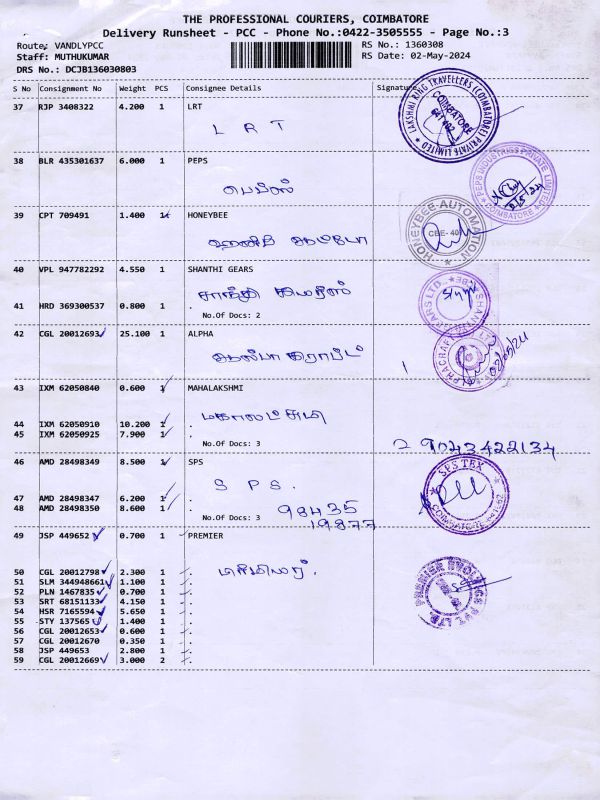 THE PROFESSIONAL COURIERS, COIMBATORE
Delivery Runsheet - PCC - Phone No.:0422-3505555 - Page No.:3
Route: VANDLYPCC
RS No.: 1360308
Staff: MUTHUKUMAR
RS Date: 02-May-2024
DRS No.: DCJB136030803
S No Consignment No Weight PCS Consignee Details Signature
37 RJP 3408322 4.200 1 LRT
LRT
LAKSHMI RING TRAVELLERS (COIMBATORE) PRIVATE LIMITED
COIMBATORE
38 BLR 435301637 6.000 1 PEPS
பெப்ஸ்
PEPS INDUSTRIES PRIVATE LIMITED
COIMBATORE
39 CPT 709491 1.400 1 HONEYBEE
HONEYBEE AUTOMATION
CBE- 40
40 VPL 947782292 4.550 1 SHANTHI GEARS
சாந்தி கியர்ஸ்
41 HRD 369300537 0.800 1 .
No.Of Docs: 2
SHANTHI GEARS LTD
42 CGL 20012693 25.100 1 ALPHA
1
02/05/24
43 IXM 62050840 0.600 1 MAHALAKSHMI
மகாலட்சுமி
44 IXM 62050910 10.200 1 .
45 IXM 62050925 7.900 1 .
No.Of Docs: 3
2 9023422134
46 AMD 28498349 8.500 1 SPS
SPS.
47 AMD 28498347 6.200 1 .
48 AMD 28498350 8.600 1 .
No.Of Docs: 3
98435
19877
SPS TEX
COIMBATORE-641 062
49 JSP 449652 0.700 1 PREMIER
50 CGL 20012798 2.300 1 .
பிரிமியர்.
51 SLM 344948661 1.100 1 .
52 PLN 1467835 0.700 1 .
53 SRT 68151133 4.150 1 .
54 HSR 7165594 5.650 1 .
55 STY 137565 1.400 1 .
56 CGL 20012653 0.600 1 .
57 CGL 20012670 0.350 1 .
58 JSP 449653 2.800 1 .
59 CGL 20012669 3.000 2 .
PREMIER EVOLVICS PVT LTD.